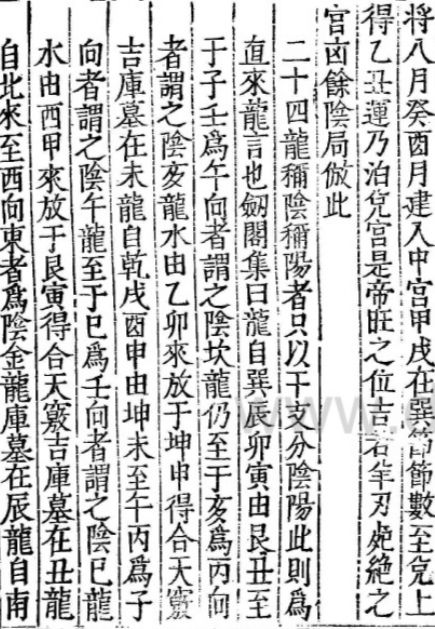 將八月癸酉月建入中宮甲戌在巽節節數至兌上
得乙丑運乃泊兌宮是帝旺之位吉若羊刃處絶之
宮凶餘陰局倣此
二十四龍稱陰稱陽者只以干支分陰陽此則爲
直來龍言也劒閣集曰龍自巽辰卯寅由艮丑至
于子壬爲午向者謂之陰坎龍仍至于亥爲丙向
者謂之陰亥龍水由乙卯來放于坤申得合天竅
吉庫墓在未龍自乾戌酉申由坤未至午丙爲子
向者謂之陰午龍至于巳爲壬向者謂之陰巳龍
水由酉甲來放于艮寅得合天竅吉庫墓在丑龍
自北來至西向東者爲陰金龍庫墓在辰龍自南